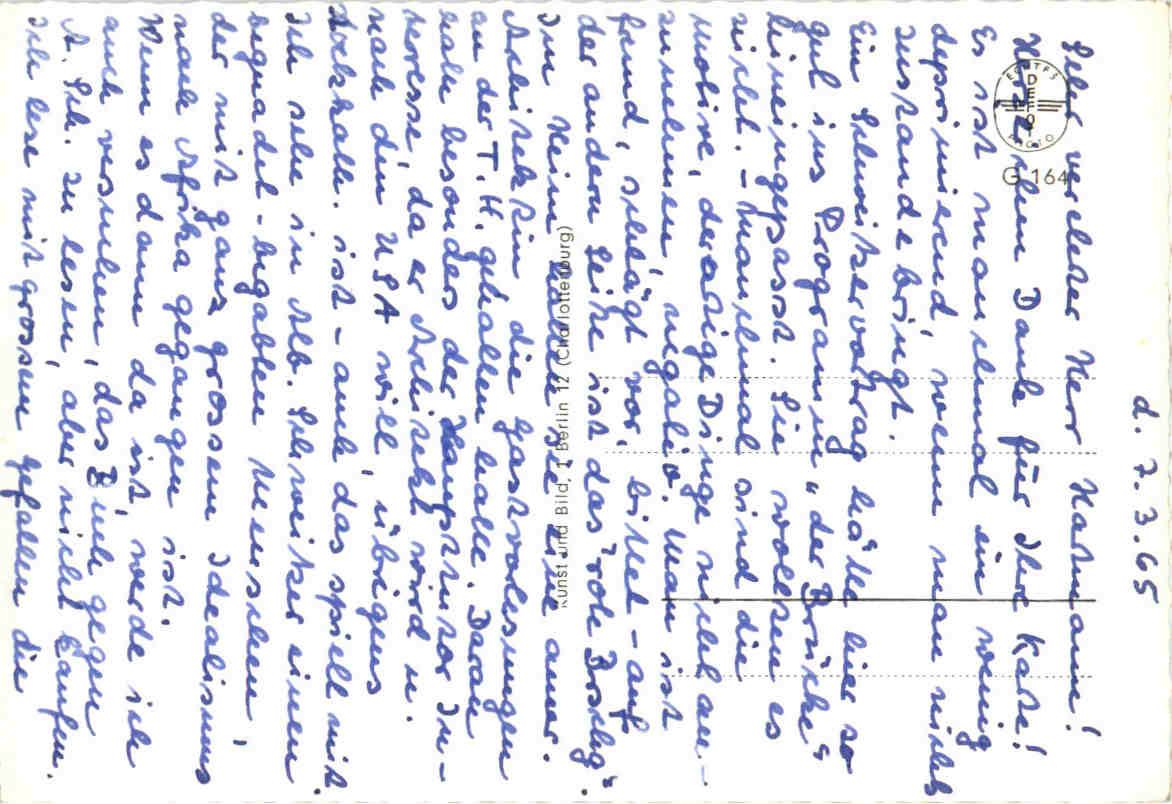 d. 7.3.65
Sehr verehrter Herr
Herzlichen Dank für Ihre Karte!
Es ist manchmal ein wenig
deprimierend, wenn man nichts
zustande bringt.
Ein Schweitzervortrag hätte hier so
gut ins Programm "der Brücke"
hineingepasst. Sie wollten es
nicht. - Manchmal sind die
Motive, derartige Dinge nicht an-
zunehmen, negativ. Man ist
fremd, schlägt vor, bittet - auf
der andern Seite ist das "rote
Im Heim hatten eine amer.
Architektin die Gastvorlesungen
an der T.H. gehalten hatte. Daran
hatte besonders der In-
teresse, da er Architekt wird u.
nach den USA will, übrigens
ist - auch das spielt mit.
Ich sehe in Alb. Schweitzer einen
begnadet-begabten Menschen
der mit ganz grossem Idealismus
nach Afrika gegangen ist.
Wenn es dann da ist, werde ich
auch versuchen, das Buch gegen
A. Sch. zu lesen, aber nicht kaufen.
Ich lese mit grossem gefallen die
ECHTES FOTO
G 164
Kunst und Bild, 1 Berlin 12 (Charlottenburg)